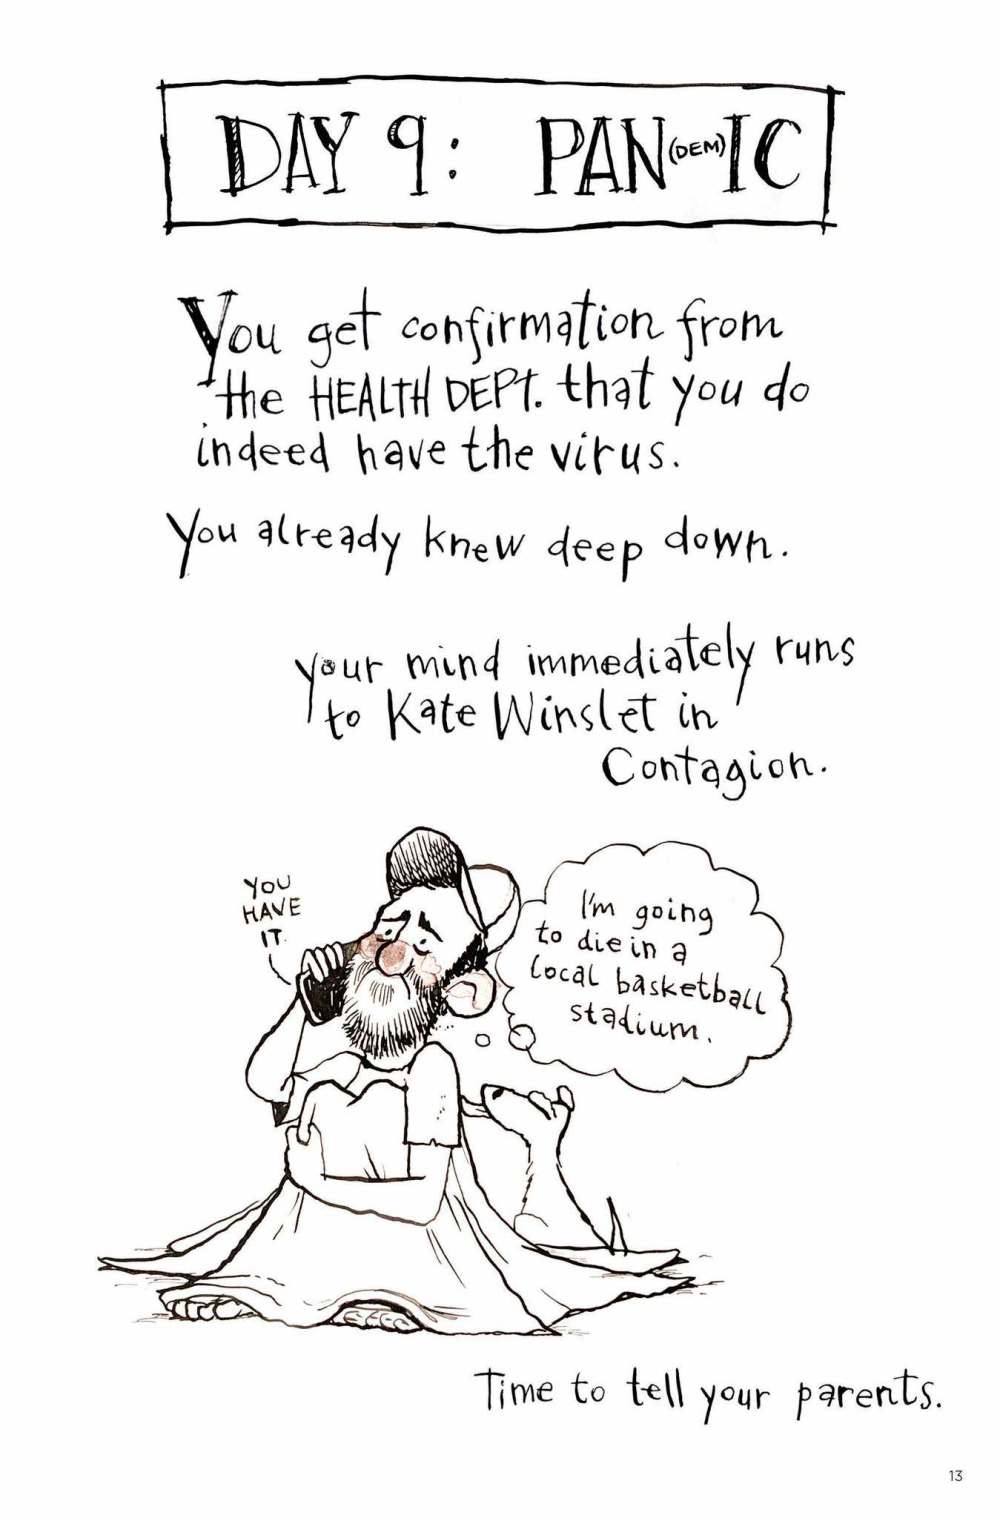 DAY 9: PAN(DEM)IC
You get confirmation from
the HEALTH DEPT. that you do
indeed have the virus.
You already knew deep down.
your mind immediately runs
to Kate Winslet in
Contagion.
YOU
HAVE
IT.
I'm going
to die in a
local basketball
stadium.
Time to tell your parents.
13